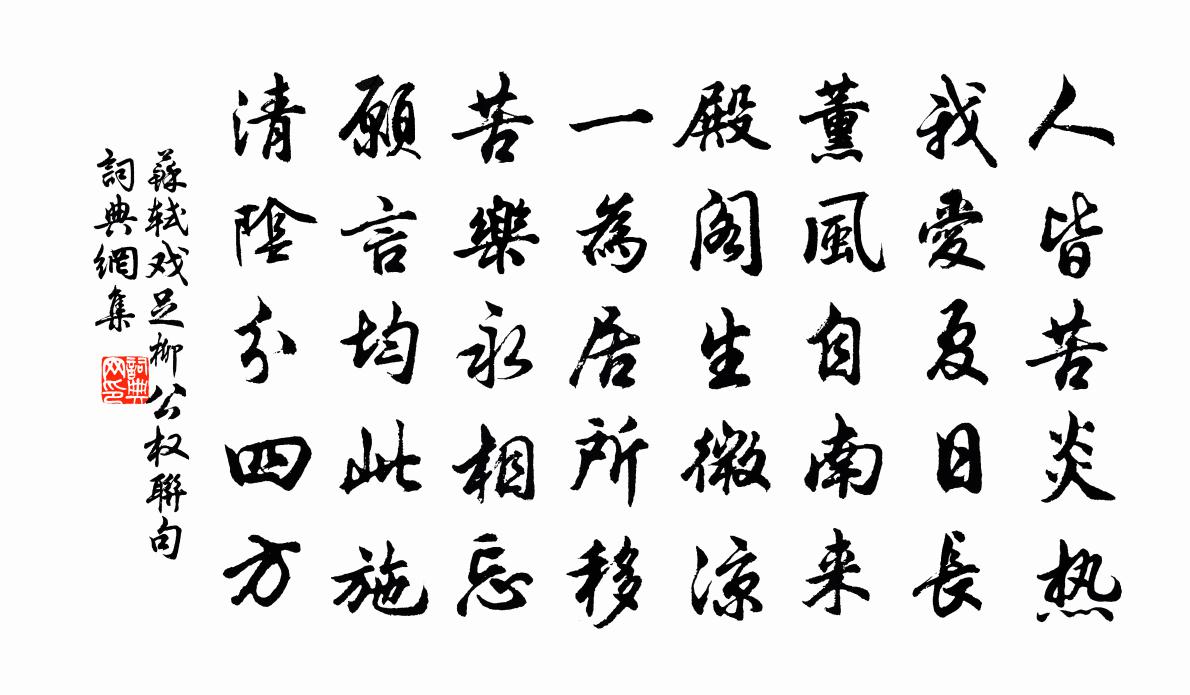 人皆苦炎热
我愛夏日長
薰風自南来
殿閣生微涼
一為居所移
苦樂永相忘
願言均此施
清陰分四方
蘇軾戏足柳公权聯句
詞典網集
詞典網印